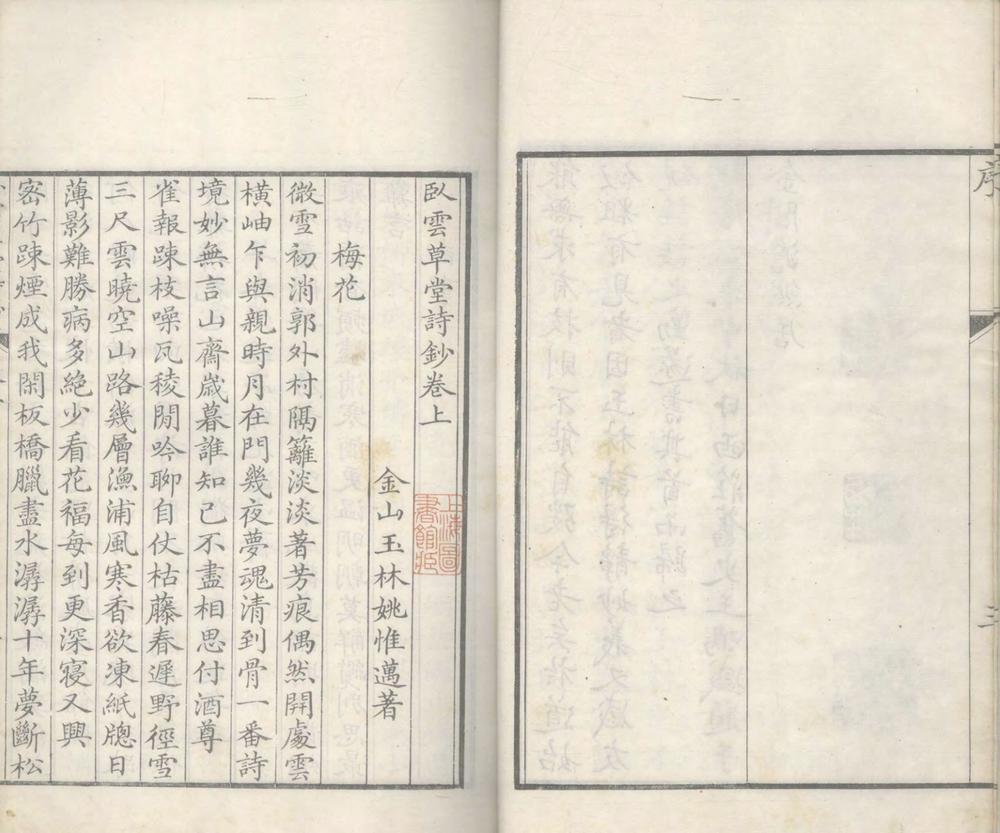 序
三
臥雲草堂詩鈔卷上
上海圖
書館藏
金山玉林姚惟邁著
梅花
微雪初消郭外村隔籬淡淡著芳痕偶然開處雲
橫岫乍與親時月在門幾夜夢魂清到骨一番詩
境妙無言山齋歲暮誰知己不盡相思付酒尊
雀報踈枝噪瓦稜閒吟聊自仗枯藤春遲野徑雪
三尺雲曉空山路幾層漁浦風寒香欲凍紙牕日
薄影難勝病多絕少看花福每到更深寢又興
密竹踈煙成我閑板橋臘盡水潺潺十年夢斷松